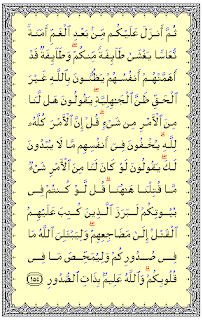 ثُمَّ أَنزَلَ عَلَيْكُم مِّنۢ بَعْدِ ٱلْغَمِّ أَمَنَةً
نُّعَاسًا يَغْشَىٰ طَآئِفَةً مِّنكُمْ ۖ وَطَآئِفَةٌ قَدْ
أَهَمَّتْهُمْ أَنفُسُهُمْ يَظُنُّونَ بِٱللَّهِ غَيْرَ
ٱلْحَقِّ ظَنَّ ٱلْجَٰهِلِيَّةِ ۖ يَقُولُونَ هَل لَّنَا
مِنَ ٱلْأَمْرِ مِن شَىْءٍ ۗ قُلْ إِنَّ ٱلْأَمْرَ كُلَّهُۥ
لِلَّهِ ۗ يُخْفُونَ فِىٓ أَنفُسِهِم مَّا لَا يُبْدُونَ
لَكَ ۖ يَقُولُونَ لَوْ كَانَ لَنَا مِنَ ٱلْأَمْرِ شَىْءٌ
مَّا قُتِلْنَا هَٰهُنَا ۗ قُل لَّوْ كُنتُمْ فِى
بُيُوتِكُمْ لَبَرَزَ ٱلَّذِينَ كُتِبَ عَلَيْهِمُ
ٱلْقَتْلُ إِلَىٰ مَضَاجِعِهِمْ ۖ وَلِيَبْتَلِىَ ٱللَّهُ مَا
فِى صُدُورِكُمْ وَلِيُمَحِّصَ مَا فِى
قُلُوبِكُمْ ۗ وَٱللَّهُ عَلِيمٌۢ بِذَاتِ ٱلصُّدُورِ ١٥٤